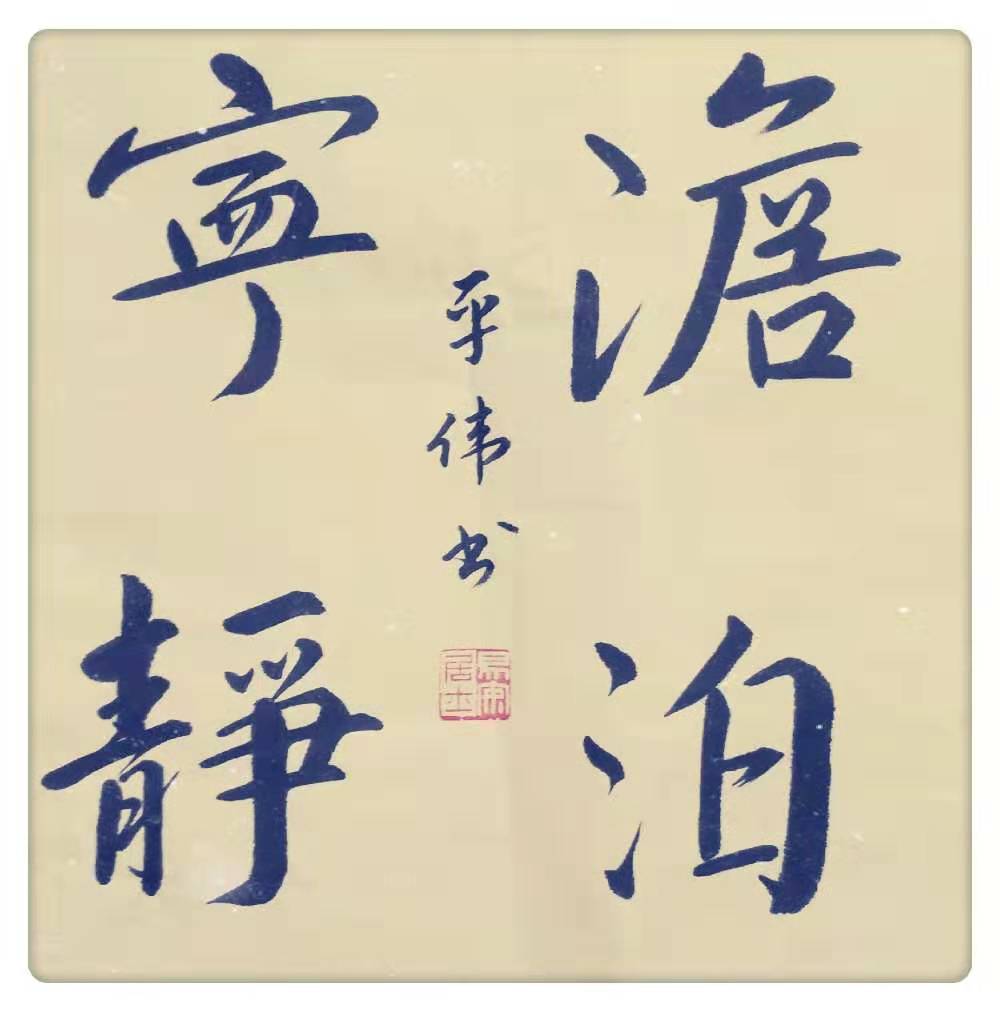 澹泊
寧靜
平伟书